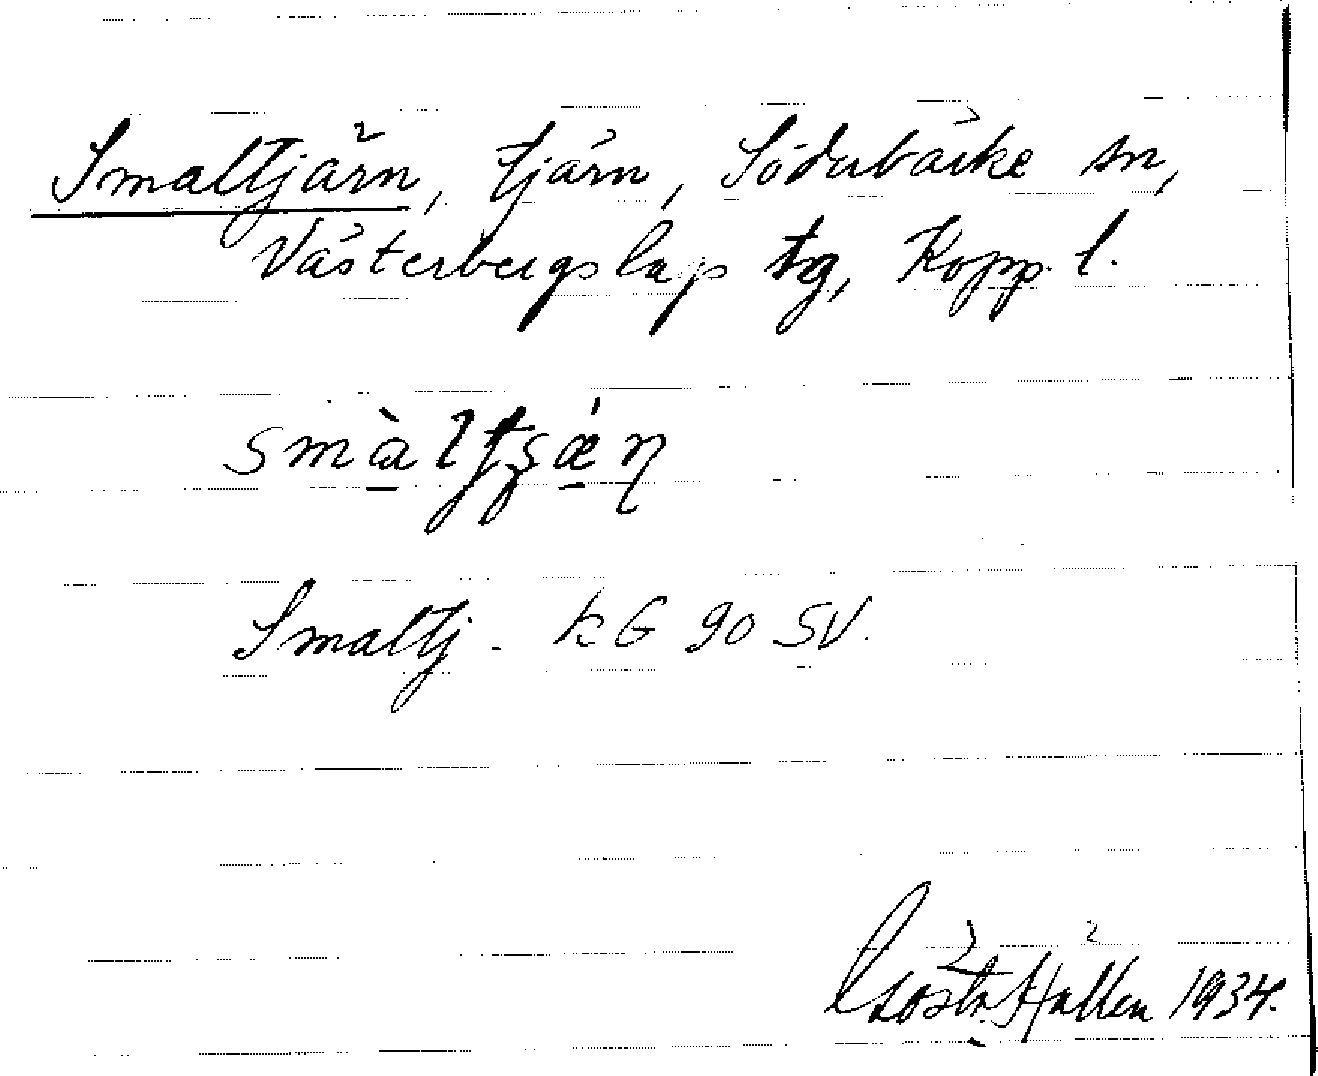 Smaltjärn, tjärn, Söderbärke sn,
Västerbergslags tg, Kopp. l.
smàltʂǽɳ
Smaltj. KG 90 SV.
Gösta Hallén 1934.